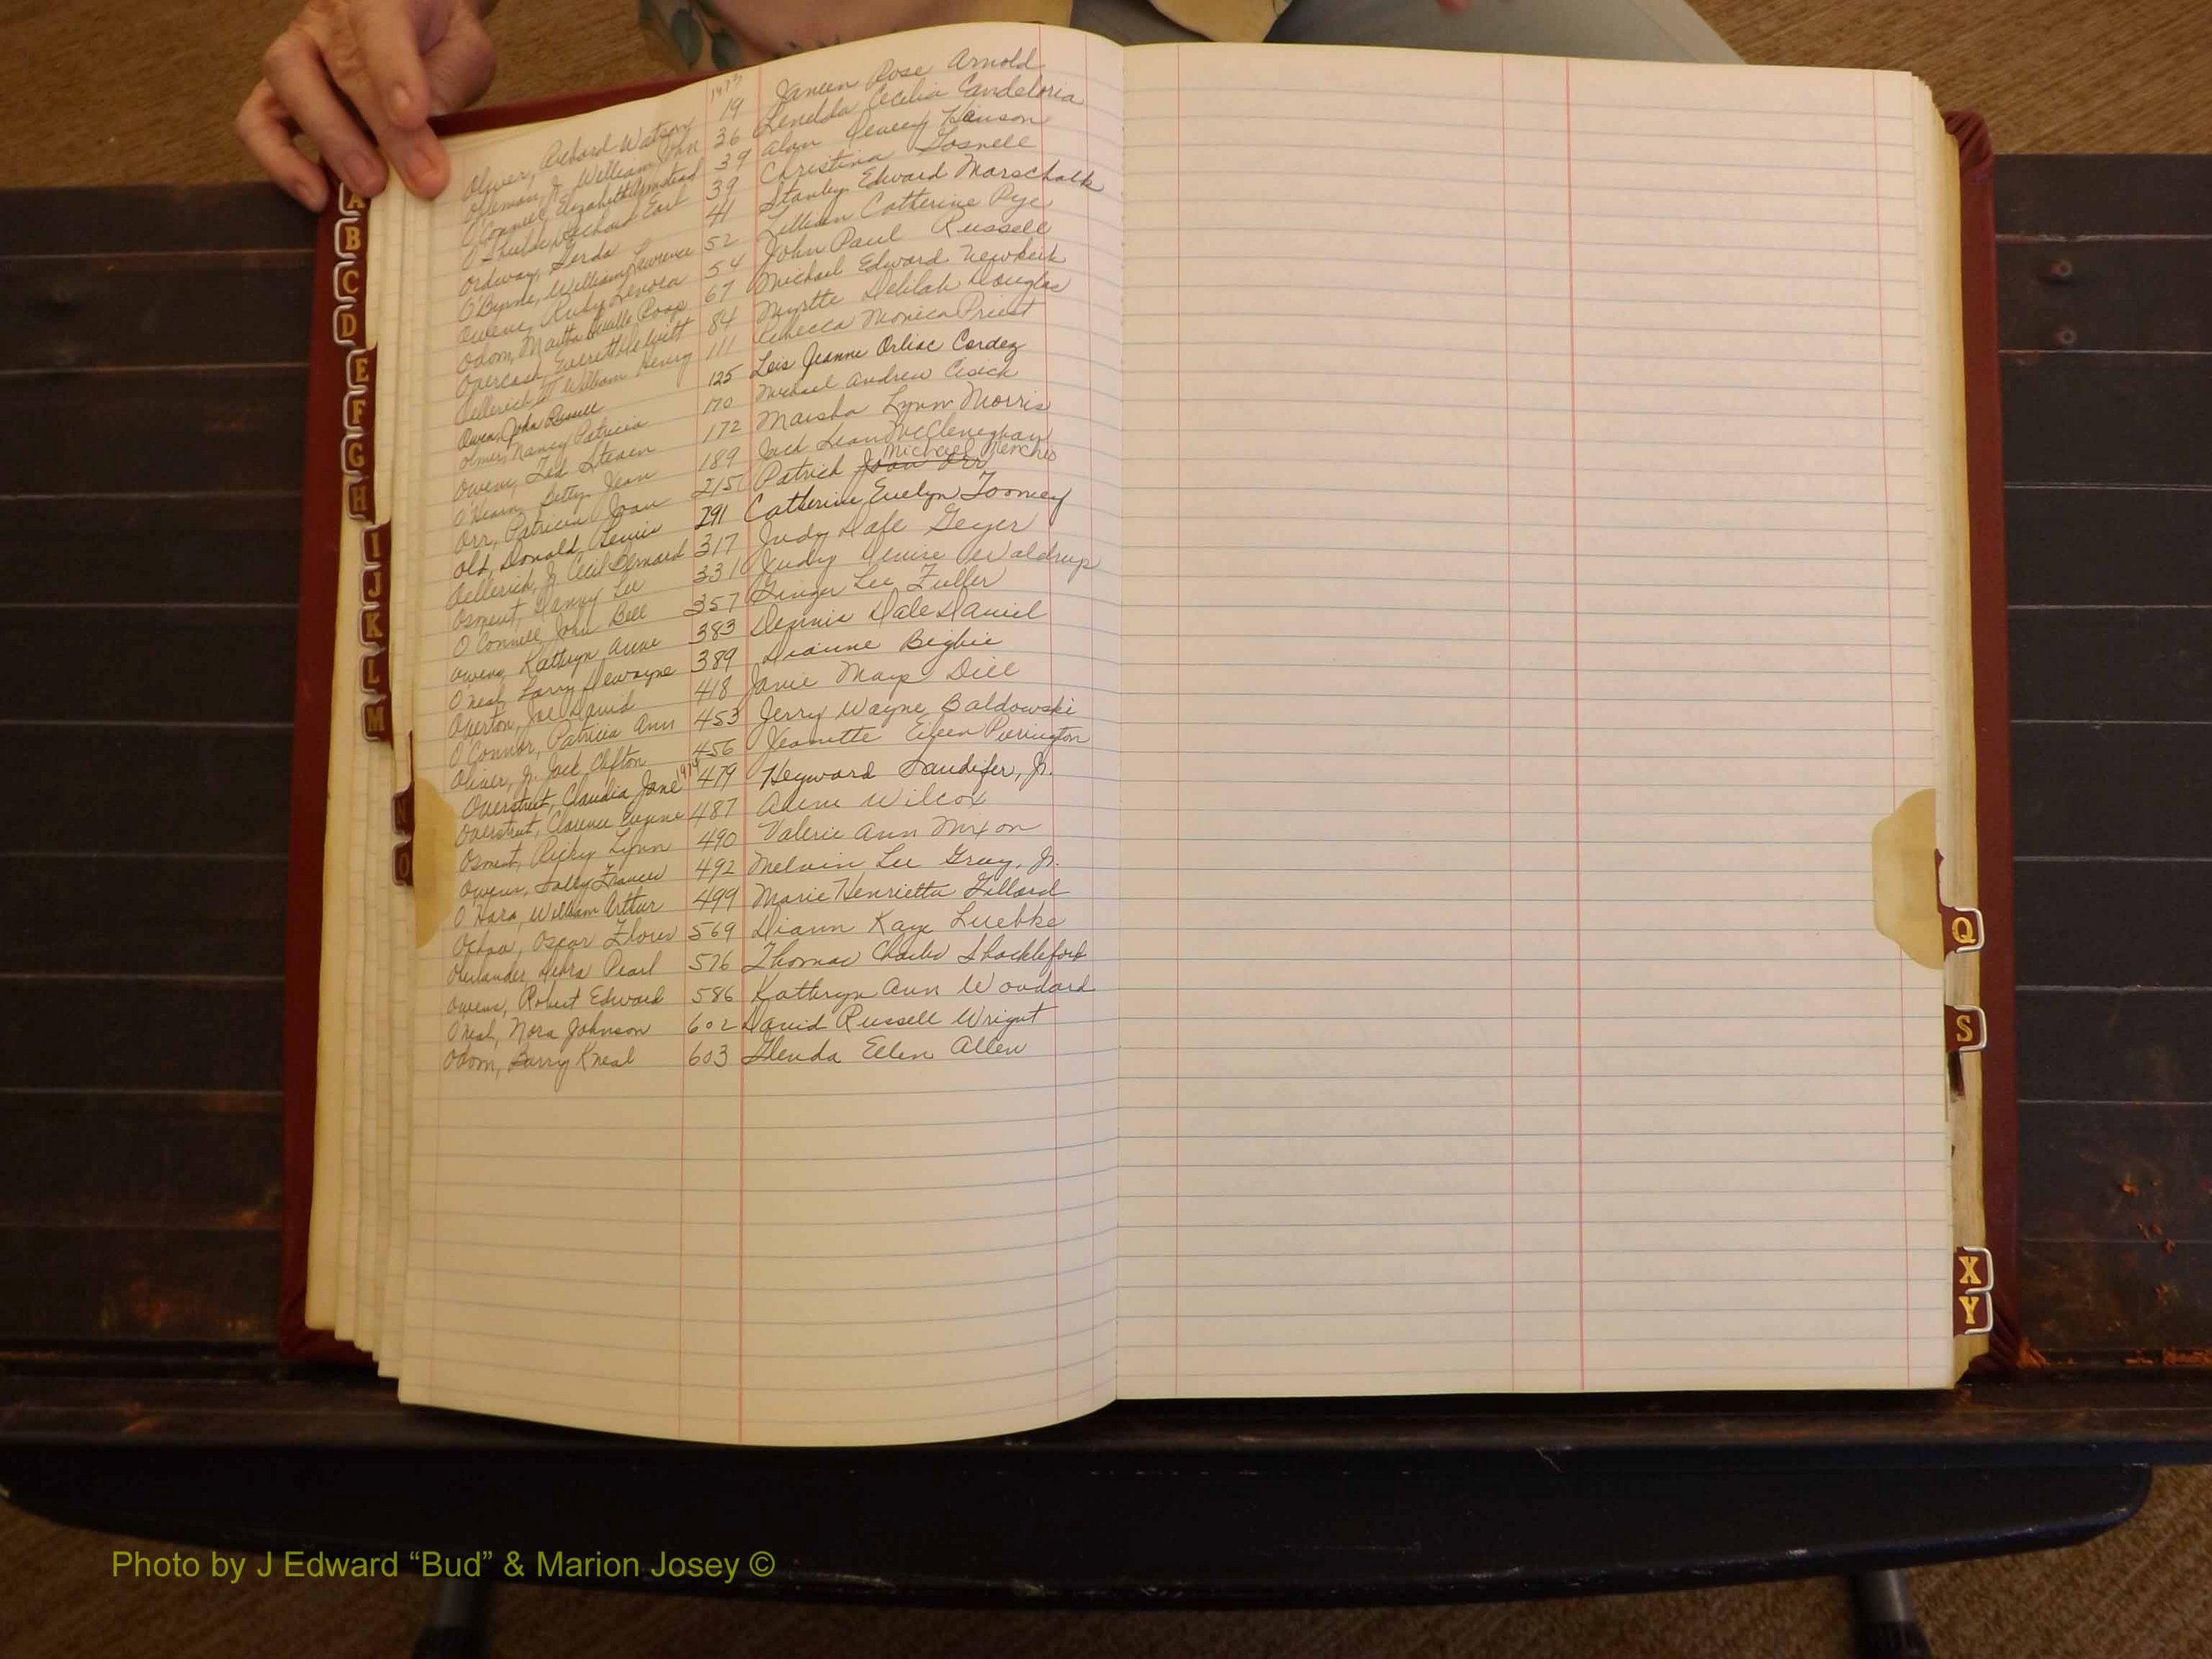 1973
Oliver, Richard Watson 19 Janeen Rose Arnold
Jr. William John 36 Cecilia Candeloria
O'Connell, Elizabeth Armstead 39 Alan Hanson
Earl 39 Christina Gosnell
Ordway, Gerda 41 Stanley Edward Marschalk
O'Byrne, William Lawrence 52 Lillian Catherine Pye
Owens, Ruby Lenora 54 John Paul Russell
Odom, Martha 67 Michael Edward Newkirk
Overcash, Everett DeWitt 84 Myrtle Delilah Douglas
Oellerich William Henry 111 Rebecca Monica Priest
Owen, John Russell 125 Lois Jeanne Orliac Cordez
Nancy Patricia 170 Michael Andrew
Owens, Ted Steven 172 Marsha Lynn Morris
O'Hearn, Betty Jean 189 Jack McCleneghan
Orr, Patricia Joan 215 Patrick Joan Orr Michael
Old, Donald Lewis 291 Catherine Evelyn Toomey
Oellerich, Jr. Cecil Bernard 317 Judy Dale Geyer
Osment, Danny Lee 331 Judy Denise Waldrup
O'Connell, John Bell 357 Ginger Lee Fuller
Owens, Kathryn Anne 383 Dennis Dale Daniel
O'Neal, Larry Dewayne 389 Dianne Bigbie
Overton, Joe David 418 Janie Mays Dill
O'Connor, Patricia Ann 453 Jerry Wayne Baldowski
Oliver, Jr. Jack Clifton 456 Jeanette Eileen Purington
Overstreet, Claudia Jane 1974 479 Heyward Sandifer, Jr.
Overstreet, Clarence Eugene 487 Wilcox
Osment, Ricky Lynn 490 Valerie Ann Nixon
Owens, Sally Frances 492 Melvin Lee Gray, Jr.
O'Hara, William Arthur 499 Marie Henrietta Gillard
Ochoa, Oscar Flores 569 Diann Kaye Luebke
Debra Pearl 576 Thomas Charles Shackleford
Owens, Robert Edward 586 Kathryn Ann Woodard
O'Neal, Nora Johnson 602 David Russell Wright
Odom, Barry Kneal 603 Glenda Ellen Allen
A
B
C
D
E
F
G
H
I
J
K
L
M
N
O
Q
S
X
Y
Photo by J Edward “Bud” & Marion Josey ©